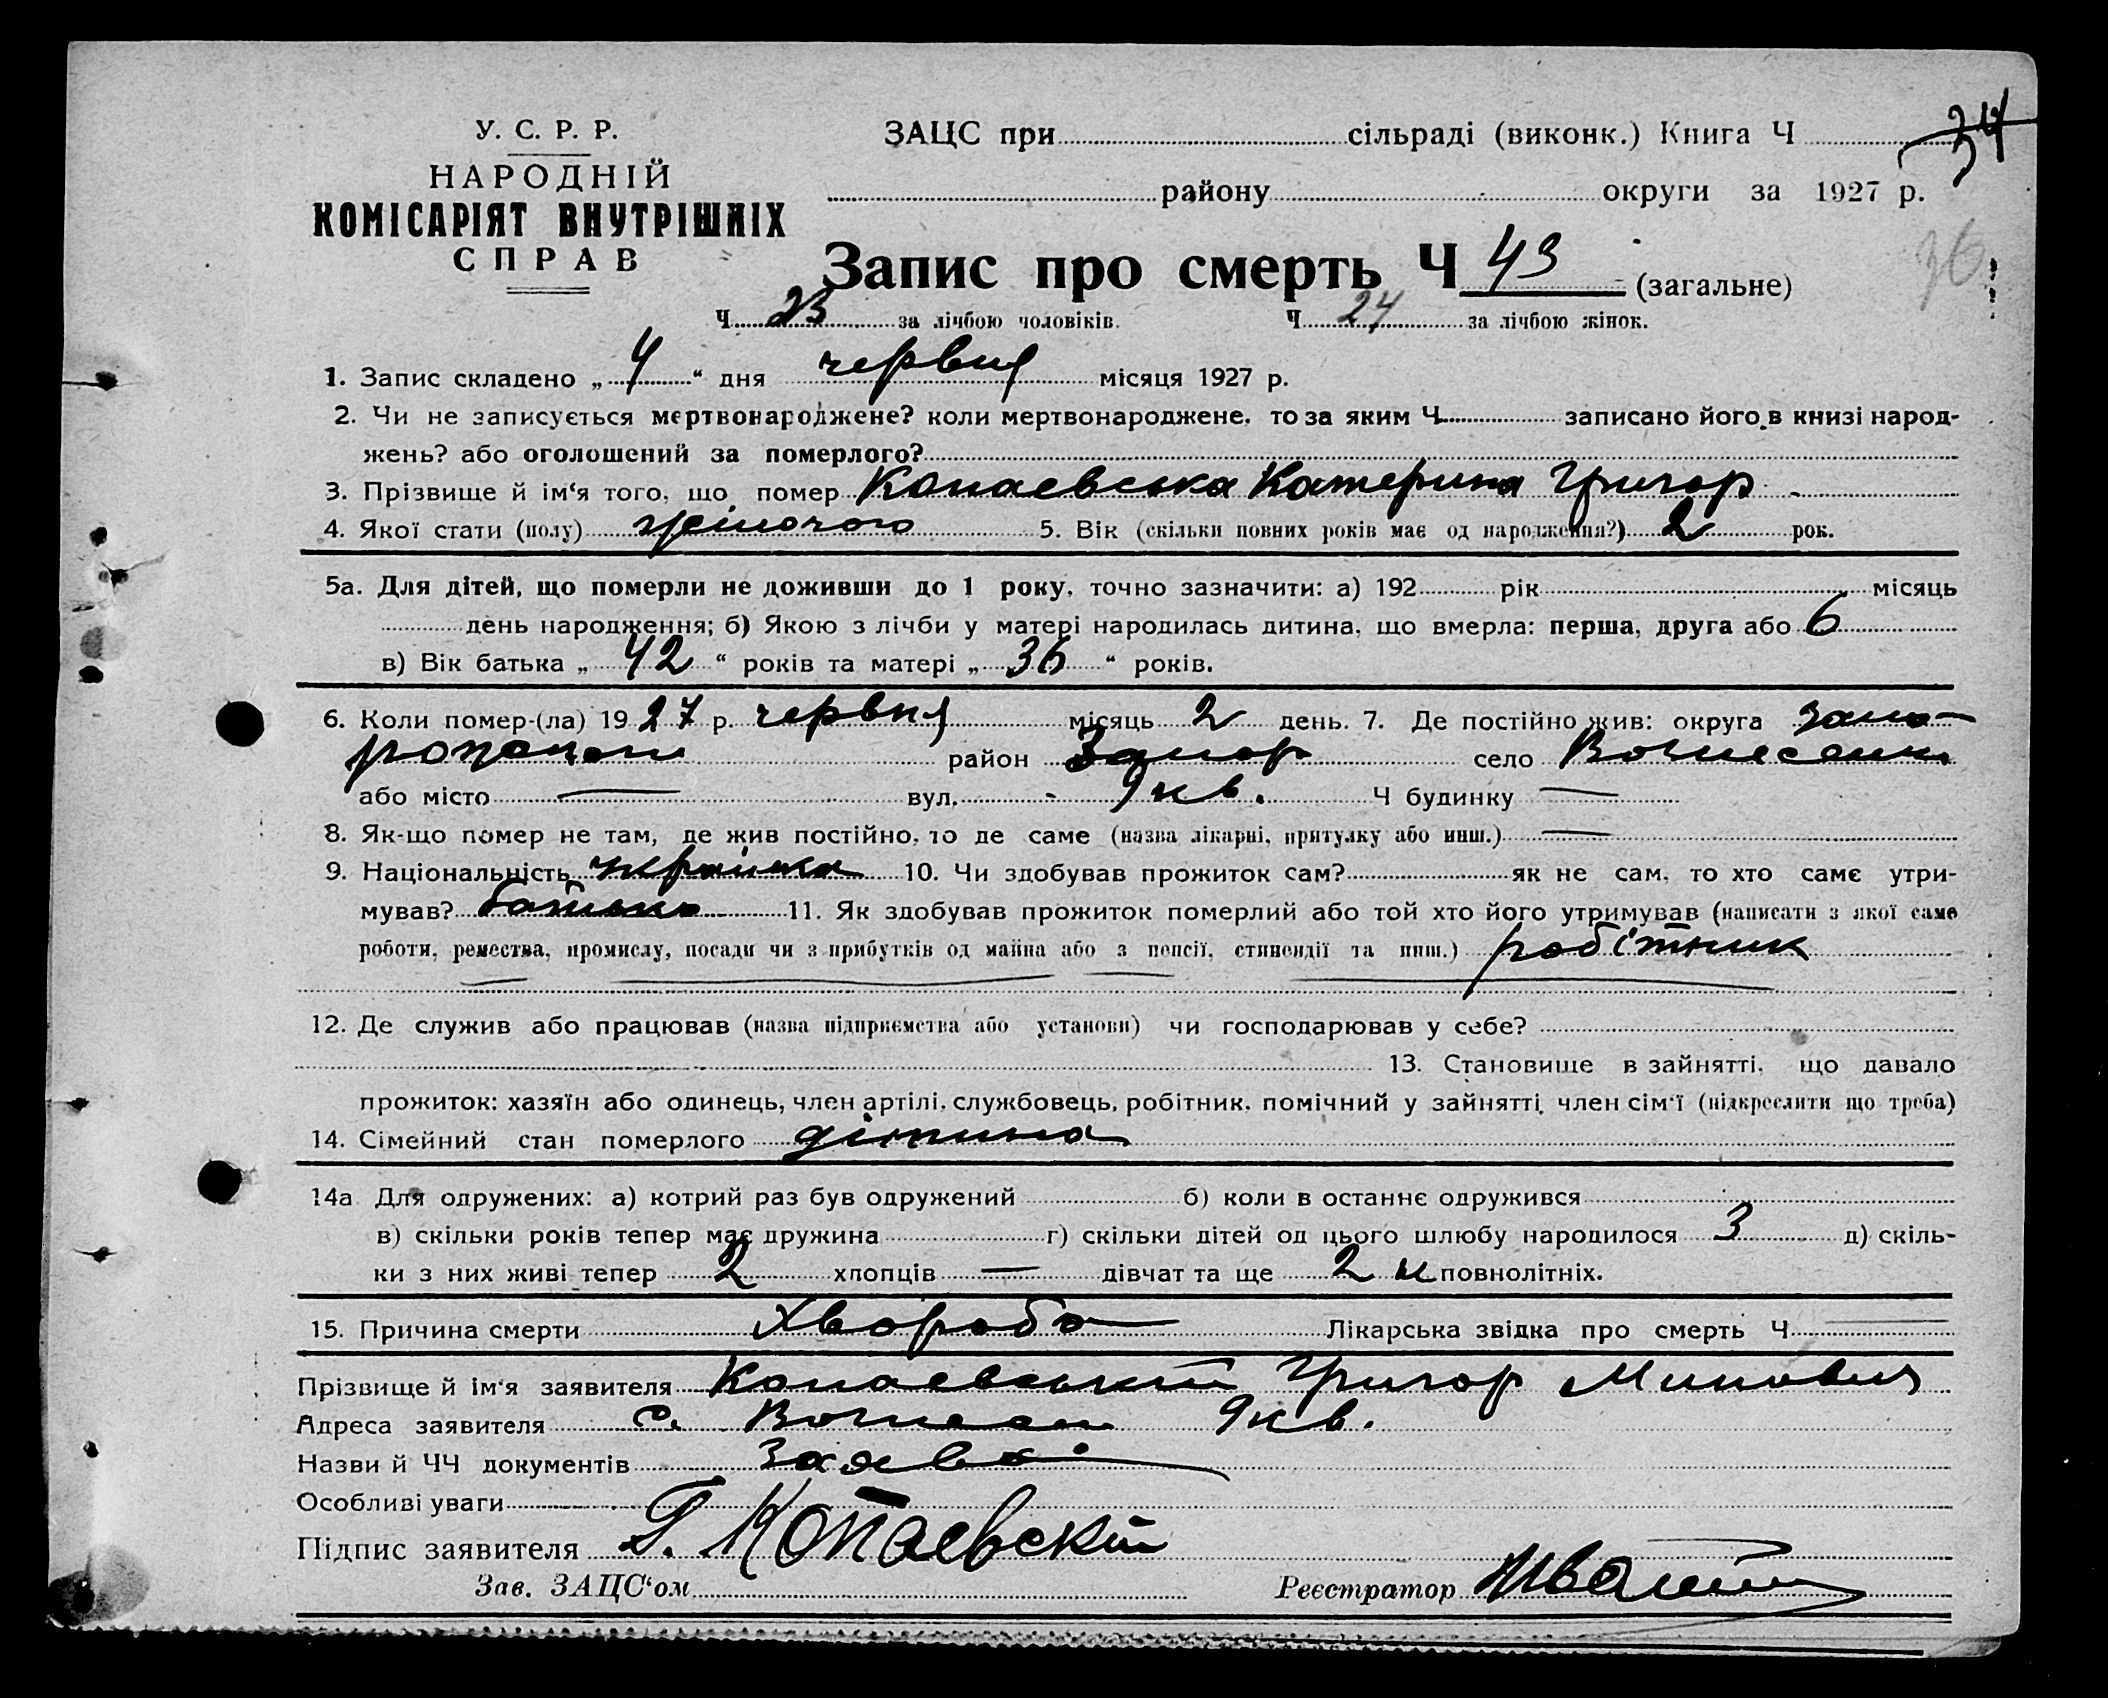 34
У. С. Р. Р.
НАРОДНІЙ
КОМІСАРІЯТ ВНУТРІШНІХ
СПРАВ
ЗАЦС при сільраді (виконк.) Книга Ч
району округи за 1927 р.
36
Запис про смерть Ч 43 (загальне)
Ч. 23 за лічбою чоловіків. Ч 24 за лічбою жінок.
1. Запис складено „ 4 “ дня червня місяця 1927 р.
2. Чи не записується мертвонароджене? коли мертвонароджене, то за яким Ч записано його в книзі народ-
жень? або оголошений за померлого?
3. Прізвище й ім‘я того, що помер Копаевська Катерина Григор
4. Якої стати (полу) жіночого 5. Вік (скільки повних років має од народження?) 2 рок.
5а. Для дітей, що померли не доживши до 1 року, точно зазначити: а) 192 рік місяць
день народження; б) Якою з лічби у матері народилась дитина, що вмерла: перша, друга або 6
в) Вік батька „ 42 “ років та матері „ 36 “ років.
6. Коли помер-(ла) 1927 р. червня місяць 2 день. 7. Де постійно жив: округа Запо-
район Запор село Вознесенка
або місто — вул. 9 кв. Ч будинку —
8. Як-що помер не там, де жив постійно, то де саме (назва лікарні, притулку або инш.) —
9. Національність українка 10. Чи здобував прожиток сам? як не сам, то хто саме утри-
мував? батько 11. Як здобував прожиток померлий або той хто його утримував (написати з якої саме
роботи, ремества, промислу, посади чи з прибутків од майна або з пенсії, стипендії та инш.) робітник
12. Де служив або працював (назва підприємства або установи) чи господарював у себе?
13. Становище в зайнятті, що давало
прожиток: хазяїн або одинець, член артілі, службовець, робітник, помічний у зайнятті член сім‘ї (підкреслити що треба)
14. Сімейний стан померлого дитина
14а Для одружених: а) котрий раз був одружений б) коли в останнє одружився
в) скільки років тепер має дружина г) скільки дітей од цього шлюбу народилося 3 д) скіль-
ки з них живі тепер 2 хлопців — дівчат та ще 2 н повнолітніх.
15. Причина смерти Хвороба Лікарська звідка про смерть Ч
Прізвище й ім‘я заявителя Копаевський Григор Минович
Адреса заявителя с. 9 кв.
Назви й ЧЧ документів Заява
Особливі уваги
Підпис заявителя Г. Копаевский
Зав. ЗАЦС‘ом Реєстратор